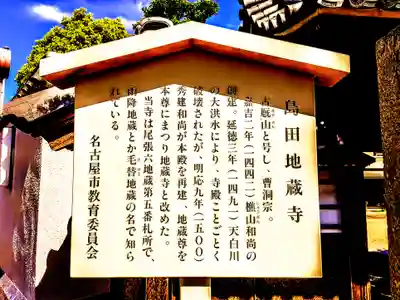 島田地蔵寺
古厩山と号し、曹洞宗。
嘉吉二年(一四四二)樵山和尚の
創建。延徳三年(一四九一)天白川
の大洪水により、寺殿ことごとく
破壊されたが、明応九年(一五〇〇)
秀建和尚が本殿を再建、地蔵尊を
本尊にまつり地蔵寺と改めた。
当寺は尾張六地蔵第五番札所で、
雨降地蔵とか毛替地蔵の名で知ら
れている。
名古屋市教育委員会